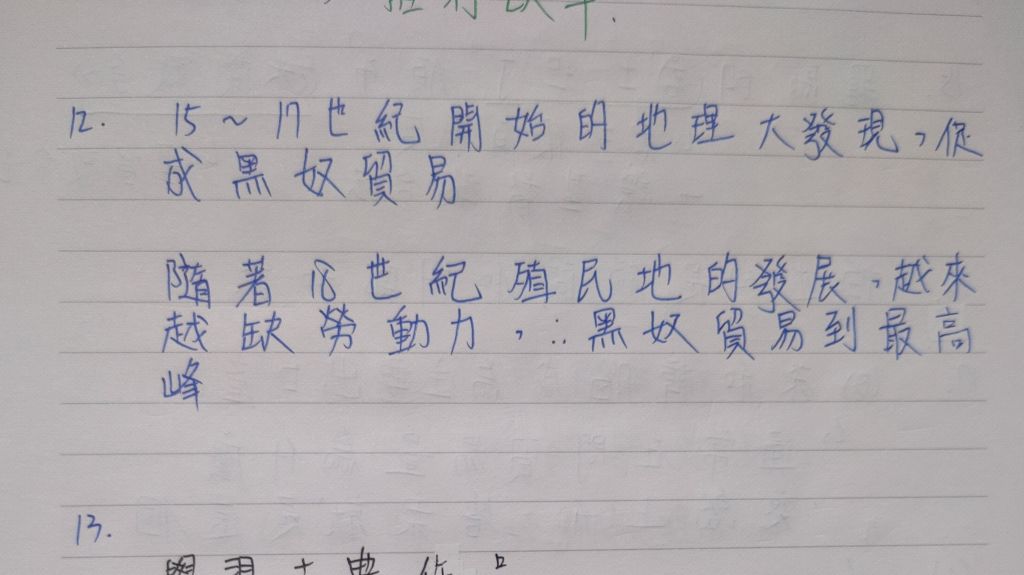 12. 15~17世紀開始的地理大發現,促
成黑奴貿易
隨著18世紀殖民地的發展,越來
越缺勞動力,∴黑奴貿易到最高
峰
13.